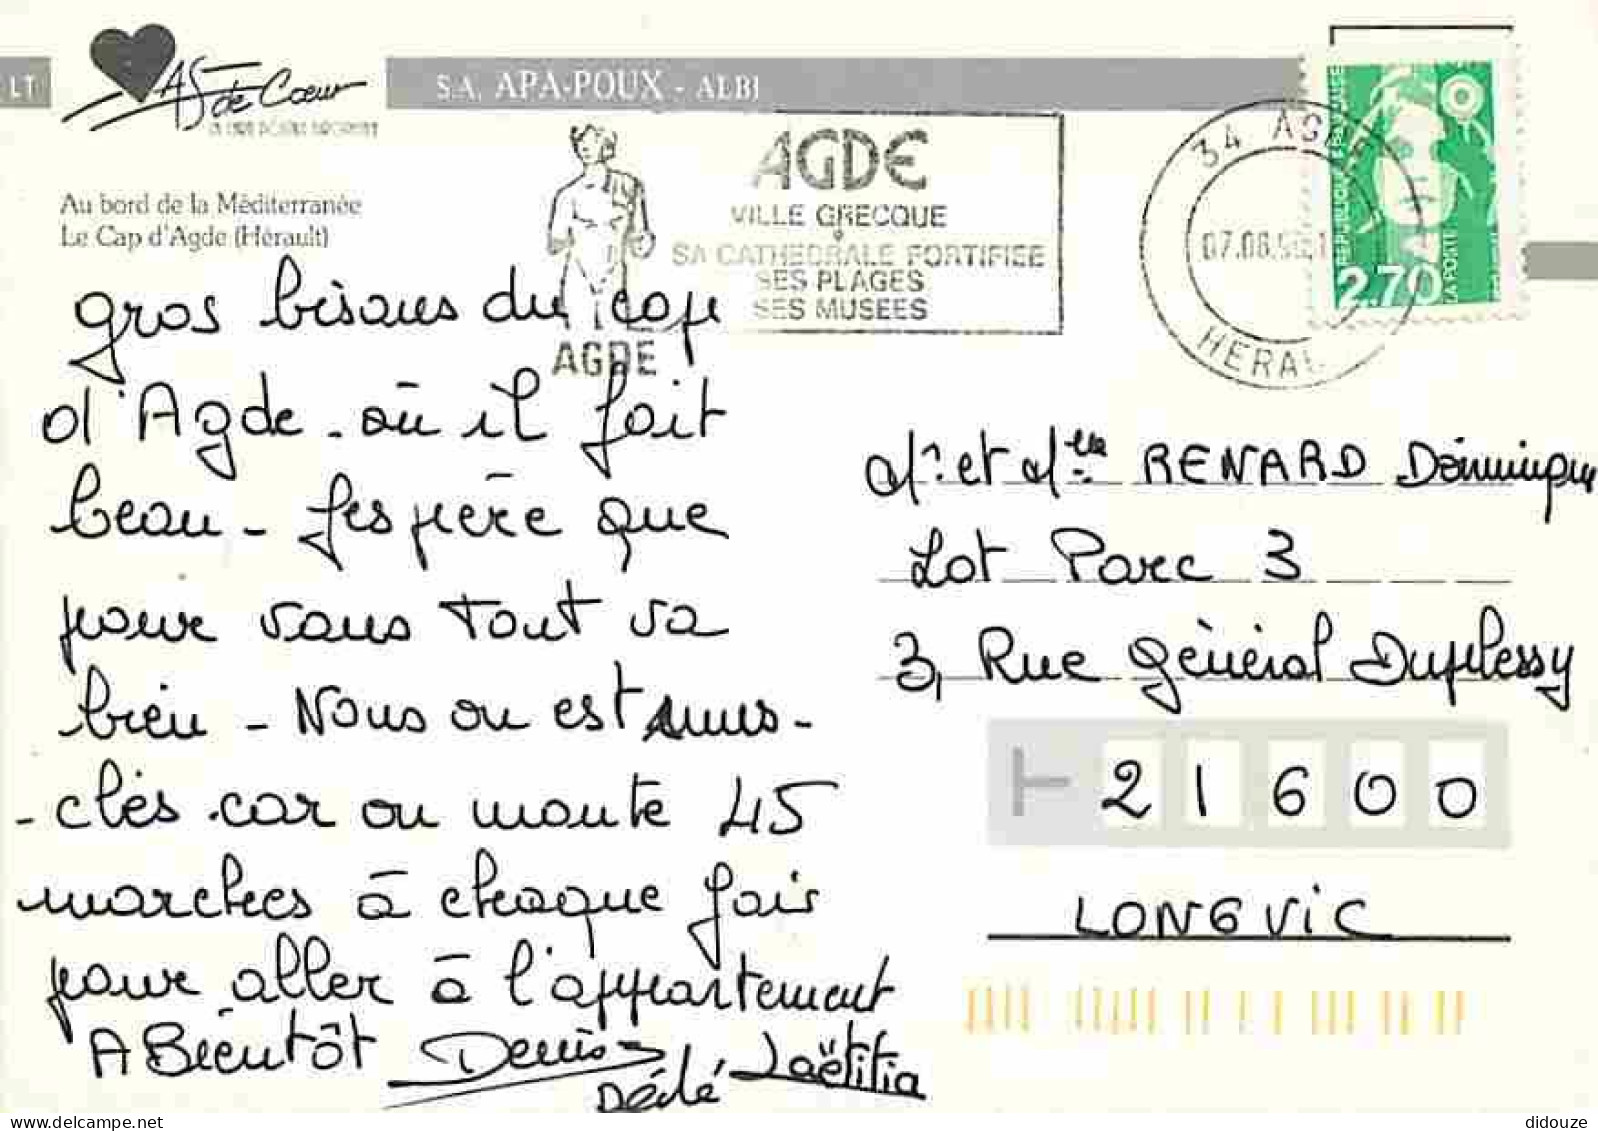 LT
As de Cœur
S.A. APA-POUX - ALBI
Au bord de la Méditerranée
Le Cap d'Agde (Hérault)
AGDE
VILLE GRECQUE
SA CATHEDRALE FORTIFIEE
SES PLAGES
SES MUSEES
AGDE
34 AGDE
07.08.
HERAULT
REPUBLIQUE FRANÇAISE
2,70
LA POSTE
gros bisous du cap
d'Agde. où il fait
beau - J'espère que
pour vous tout va
bien - Nous on est mus-
-clés car on monte 45
marches à chaque fois
pour aller à l'appartement
A Bientôt Denis
Dédé Laëtitia
Mr et Mlle RENARD Dominique
Lot Parc 3
3, Rue Général Duplessy
21600
LONGVIC
didouze @ delcampe.net